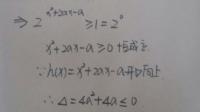 ⇒ 2^{x²+2ax-a} ≥ 1 = 2⁰
x²+2ax-a ≥ 0 恒成立
∵ h(x) = x²+2ax-a 开口向上
∴ Δ = 4a²+4a ≤ 0